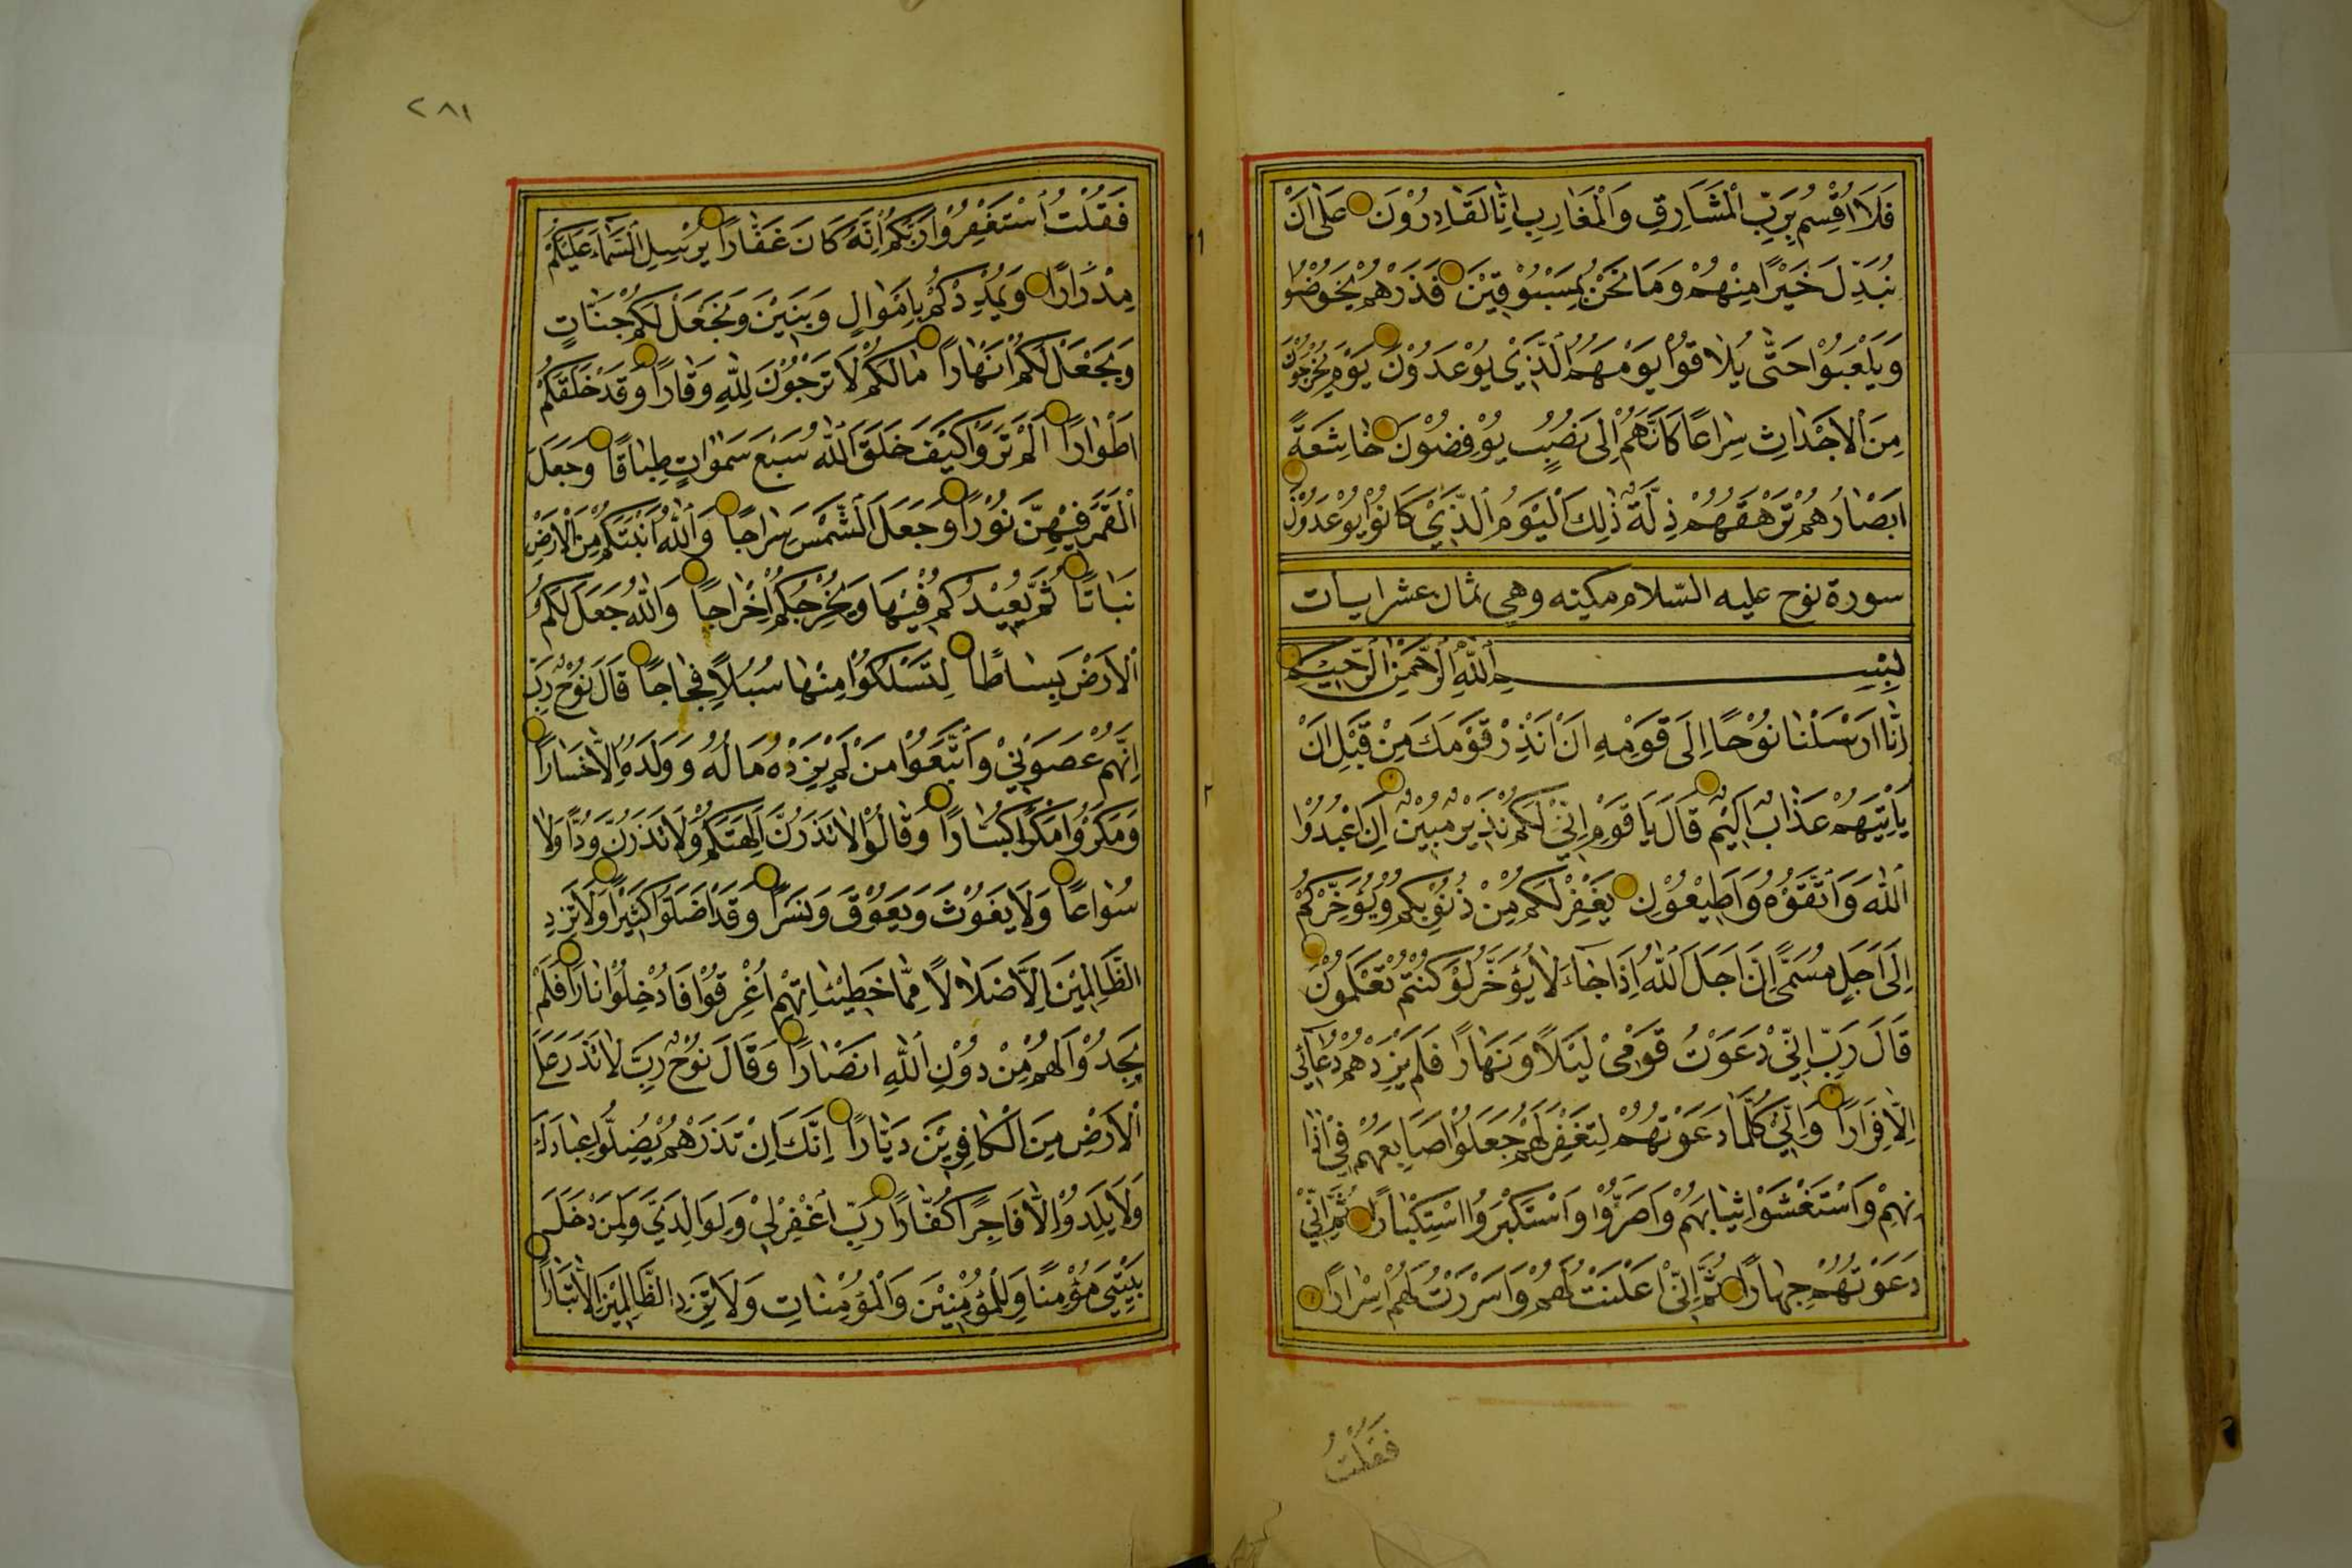 فَلَا اُقْسِمُ بِرَبِّ الْمَشَارِقِ وَالْمَغَارِبِ اِنَّا لَقَادِرُوْنَ عَلٰى اَنْ
نُبَدِّلَ خَيْرًا مِنْهُمْ وَمَا نَحْنُ بِمَسْبُوْقِيْنَ فَذَرْهُمْ يَخُوْضُوْا
وَيَلْعَبُوْا حَتّٰى يُلَاقُوْا يَوْمَهُمُ الَّذِيْ يُوْعَدُوْنَ يَوْمَ يَخْرُجُوْنَ
مِنَ الْاَجْدَاثِ سِرَاعًا كَاَنَّهُمْ اِلٰى نُصُبٍ يُوْفِضُوْنَ خَاشِعَةً
اَبْصَارُهُمْ تَرْهَقُهُمْ ذِلَّةٌ ذٰلِكَ الْيَوْمُ الَّذِيْ كَانُوْا يُوْعَدُوْنَ
سورة نوح عليه السّلام مكيته وهي ثمان عشر ايات
بِسْمِ اللّٰهِ الرَّحْمٰنِ الرَّحِيْمِ
اِنَّا اَرْسَلْنَا نُوْحًا اِلٰى قَوْمِهِ اَنْ اَنْذِرْ قَوْمَكَ مِنْ قَبْلِ اَنْ
يَاْتِيَهُمْ عَذَابٌ اَلِيْمٌ قَالَ يَا قَوْمِ اِنِّيْ لَكُمْ نَذِيْرٌ مُبِيْنٌ اَنِ اعْبُدُوْا
اللّٰهَ وَاتَّقُوْهُ وَاَطِيْعُوْنِ يَغْفِرْ لَكُمْ مِنْ ذُنُوْبِكُمْ وَيُؤَخِّرْكُمْ
اِلٰى اَجَلٍ مُسَمًّى اِنَّ اَجَلَ اللّٰهِ اِذَا جَاءَ لَا يُؤَخَّرُ لَوْ كُنْتُمْ تَعْلَمُوْنَ
قَالَ رَبِّ اِنِّيْ دَعَوْتُ قَوْمِيْ لَيْلًا وَنَهَارًا فَلَمْ يَزِدْهُمْ دُعَآئِي
اِلَّا فِرَارًا وَاِنِّيْ كُلَّمَا دَعَوْتُهُمْ لِتَغْفِرَ لَهُمْ جَعَلُوْا اَصَابِعَهُمْ فِيْ اٰذَا
نِهِمْ وَاسْتَغْشَوْا ثِيَابَهُمْ وَاَصَرُّوْا وَاسْتَكْبَرُوا اسْتِكْبَارًا ثُمَّ اِنِّيْ
دَعَوْتُهُمْ جِهَارًا ثُمَّ اِنِّيْ اَعْلَنْتُ لَهُمْ وَاَسْرَرْتُ لَهُمْ اِسْرَارًا
فَقُلْتُ
٢٨١
فَقُلْتُ اسْتَغْفِرُوْا رَبَّكُمْ اِنَّهُ كَانَ غَفَّارًا يُرْسِلِ السَّمَاءَ عَلَيْكُمْ
مِدْرَارًا وَيُمْدِدْكُمْ بِاَمْوَالٍ وَبَنِيْنَ وَيَجْعَلْ لَكُمْ جَنَّاتٍ
وَيَجْعَلْ لَكُمْ اَنْهَارًا مَا لَكُمْ لَا تَرْجُوْنَ لِلّٰهِ وَقَارًا وَقَدْ خَلَقَكُمْ
اَطْوَارًا اَلَمْ تَرَوْا كَيْفَ خَلَقَ اللّٰهُ سَبْعَ سَمٰوَاتٍ طِبَاقًا وَجَعَلَ
الْقَمَرَ فِيْهِنَّ نُوْرًا وَجَعَلَ الشَّمْسَ سِرَاجًا وَاللّٰهُ اَنْبَتَكُمْ مِنَ الْاَرْضِ
نَبَاتًا ثُمَّ يُعِيْدُكُمْ فِيْهَا وَيُخْرِجُكُمْ اِخْرَاجًا وَاللّٰهُ جَعَلَ لَكُمُ
الْاَرْضَ بِسَاطًا لِتَسْلُكُوْا مِنْهَا سُبُلًا فِجَاجًا قَالَ نُوْحٌ رَبِّ
اِنَّهُمْ عَصَوْنِيْ وَاتَّبَعُوْا مَنْ لَمْ يَزِدْهُ مَالُهُ وَوَلَدُهُ اِلَّا خَسَارًا
وَمَكَرُوْا مَكْرًا كُبَّارًا وَقَالُوْا لَا تَذَرُنَّ اٰلِهَتَكُمْ وَلَا تَذَرُنَّ وَدًّا وَلَا
سُوَاعًا وَلَا يَغُوْثَ وَيَعُوْقَ وَنَسْرًا وَقَدْ اَضَلُّوْا كَثِيْرًا وَلَا تَزِدِ
الظَّالِمِيْنَ اِلَّا ضَلَالًا مِمَّا خَطِيْئَاتِهِمْ اُغْرِقُوْا فَاُدْخِلُوْا نَارًا فَلَمْ
يَجِدُوْا لَهُمْ مِنْ دُوْنِ اللّٰهِ اَنْصَارًا وَقَالَ نُوْحٌ رَبِّ لَا تَذَرْ عَلَى
الْاَرْضِ مِنَ الْكَافِرِيْنَ دَيَّارًا اِنَّكَ اِنْ تَذَرْهُمْ يُضِلُّوْا عِبَادَكَ
وَلَا يَلِدُوْا اِلَّا فَاجِرًا كَفَّارًا رَبِّ اغْفِرْ لِيْ وَلِوَالِدَيَّ وَلِمَنْ دَخَلَ
بَيْتِيَ مُؤْمِنًا وَلِلْمُؤْمِنِيْنَ وَالْمُؤْمِنَاتِ وَلَا تَزِدِ الظَّالِمِيْنَ اِلَّا تَبَارًا